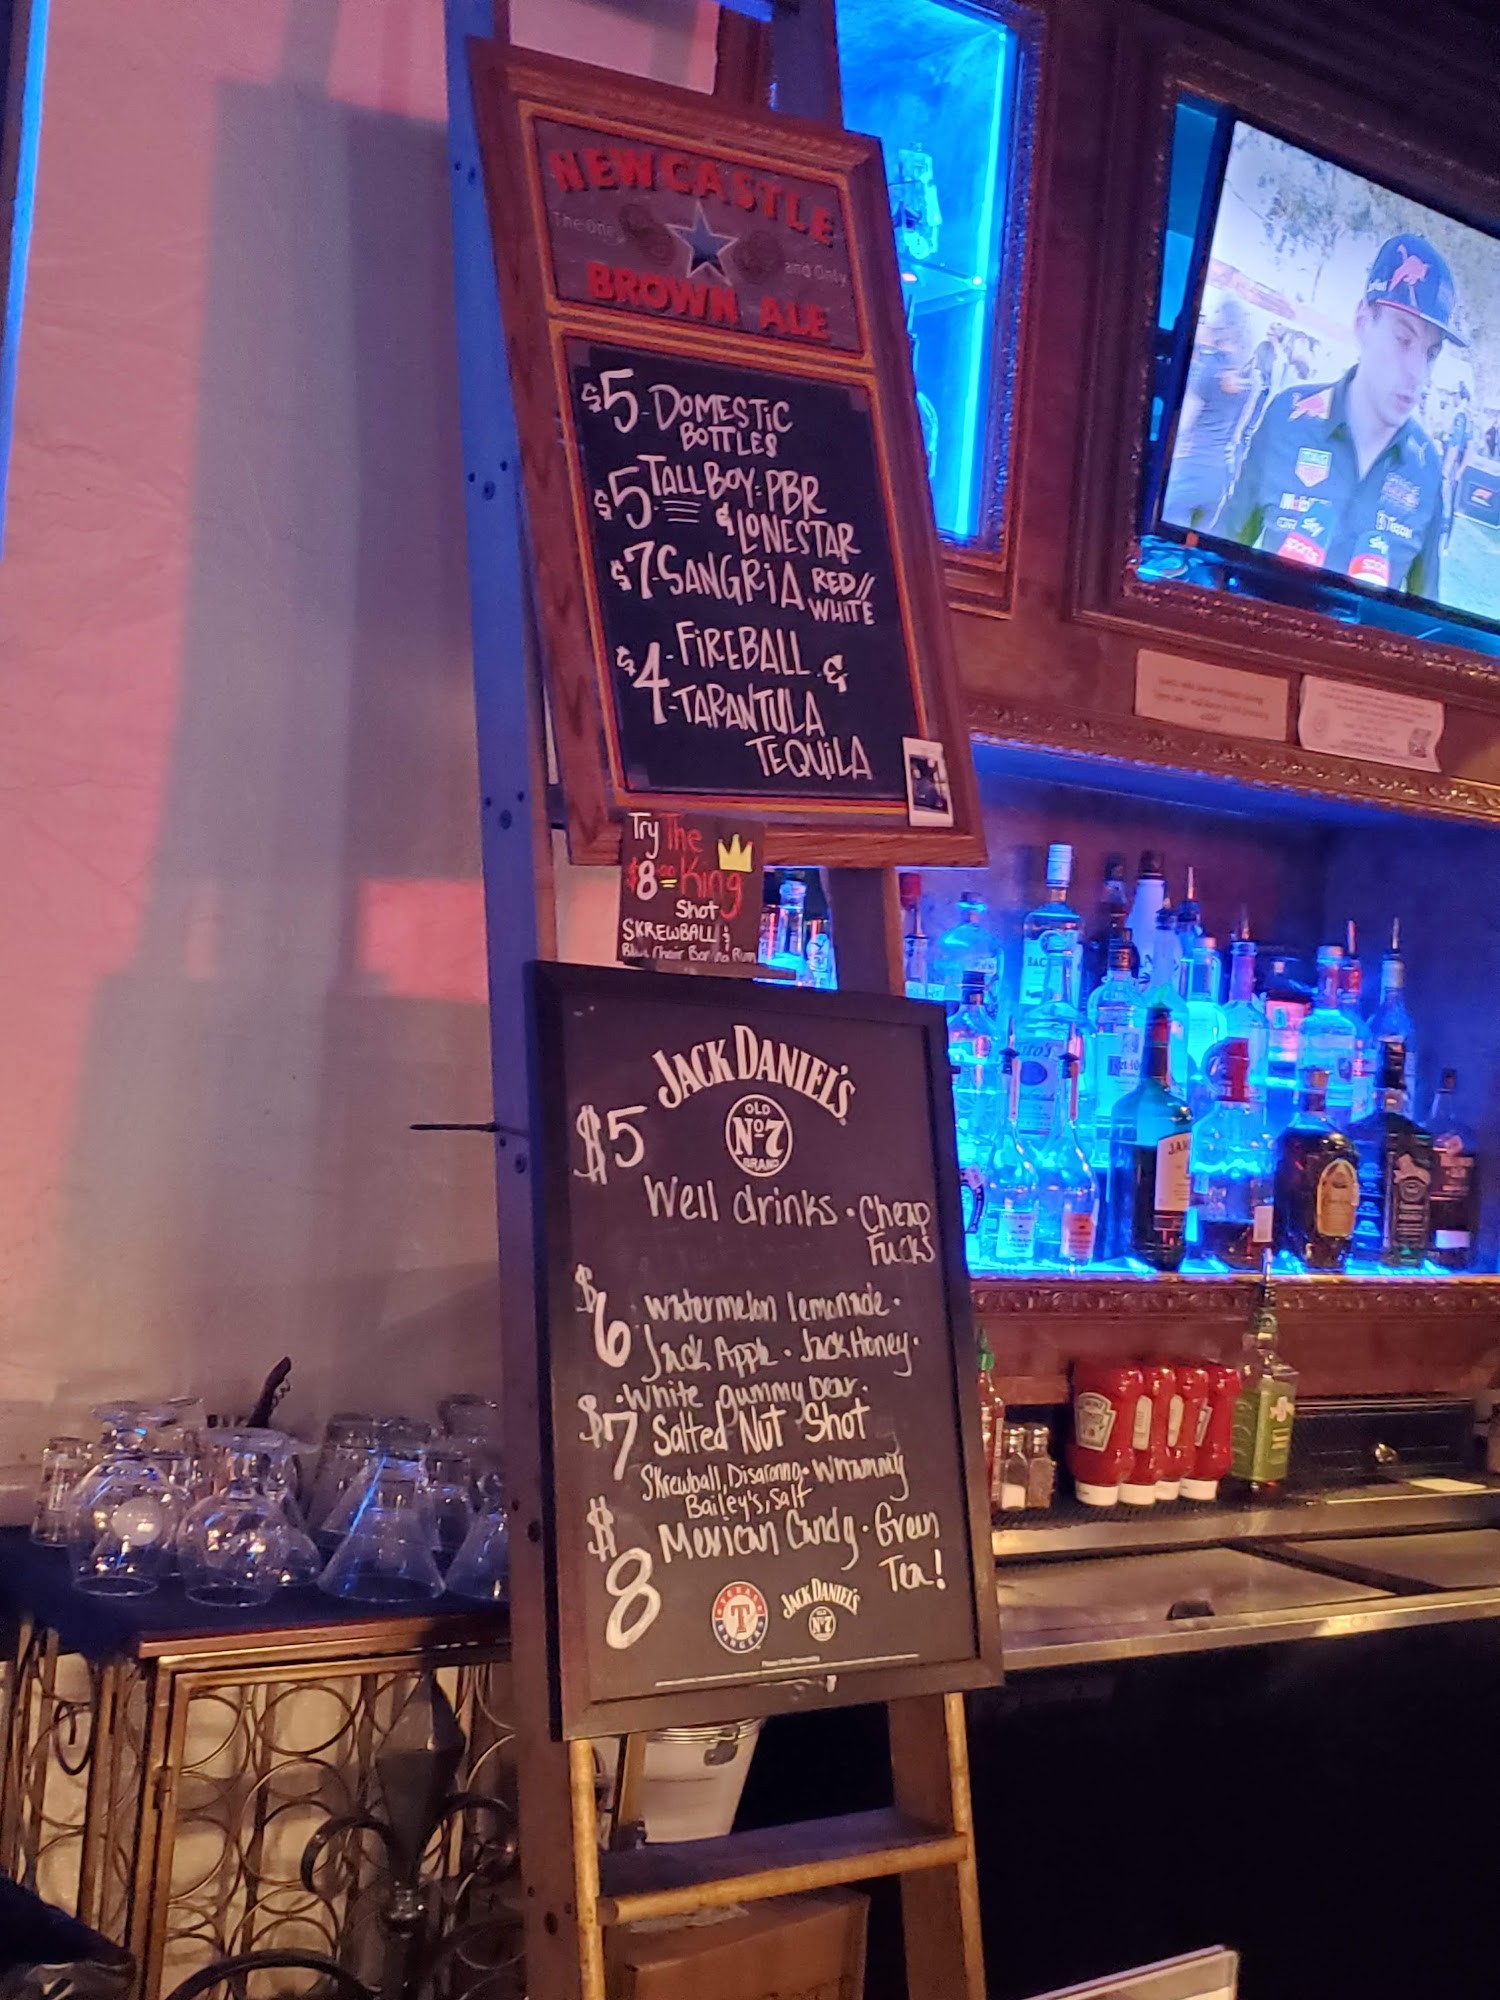 NEWCASTLE
The One and Only
BROWN ALE
$5 - DOMESTIC
BOTTLES
$5 TALL BOY: PBR
& LONESTAR
$7 - SANGRIA RED//
WHITE
$4 - FIREBALL &
- TARANTULA
TEQUILA
Try The
$8.00 King
Shot
SKREWBALL &
JACK DANIEL'S
OLD
No 7
BRAND
$5
Well drinks · Cheap
Fucks
$6 watermelon lemonade ·
Jack Apple · Jack Honey ·
· White gummy bear ·
$7 Salted Nut Shot
Skrewball, Disaronno,
Bailey's, Salt
$8 Mexican Candy · Green
Tea!
TEXAS
T
RANGERS
JACK DANIEL'S
OLD
No 7
TAG
Mobil
sky
sports
sky
sports
BAC
Tito's
JAM
HEINZ